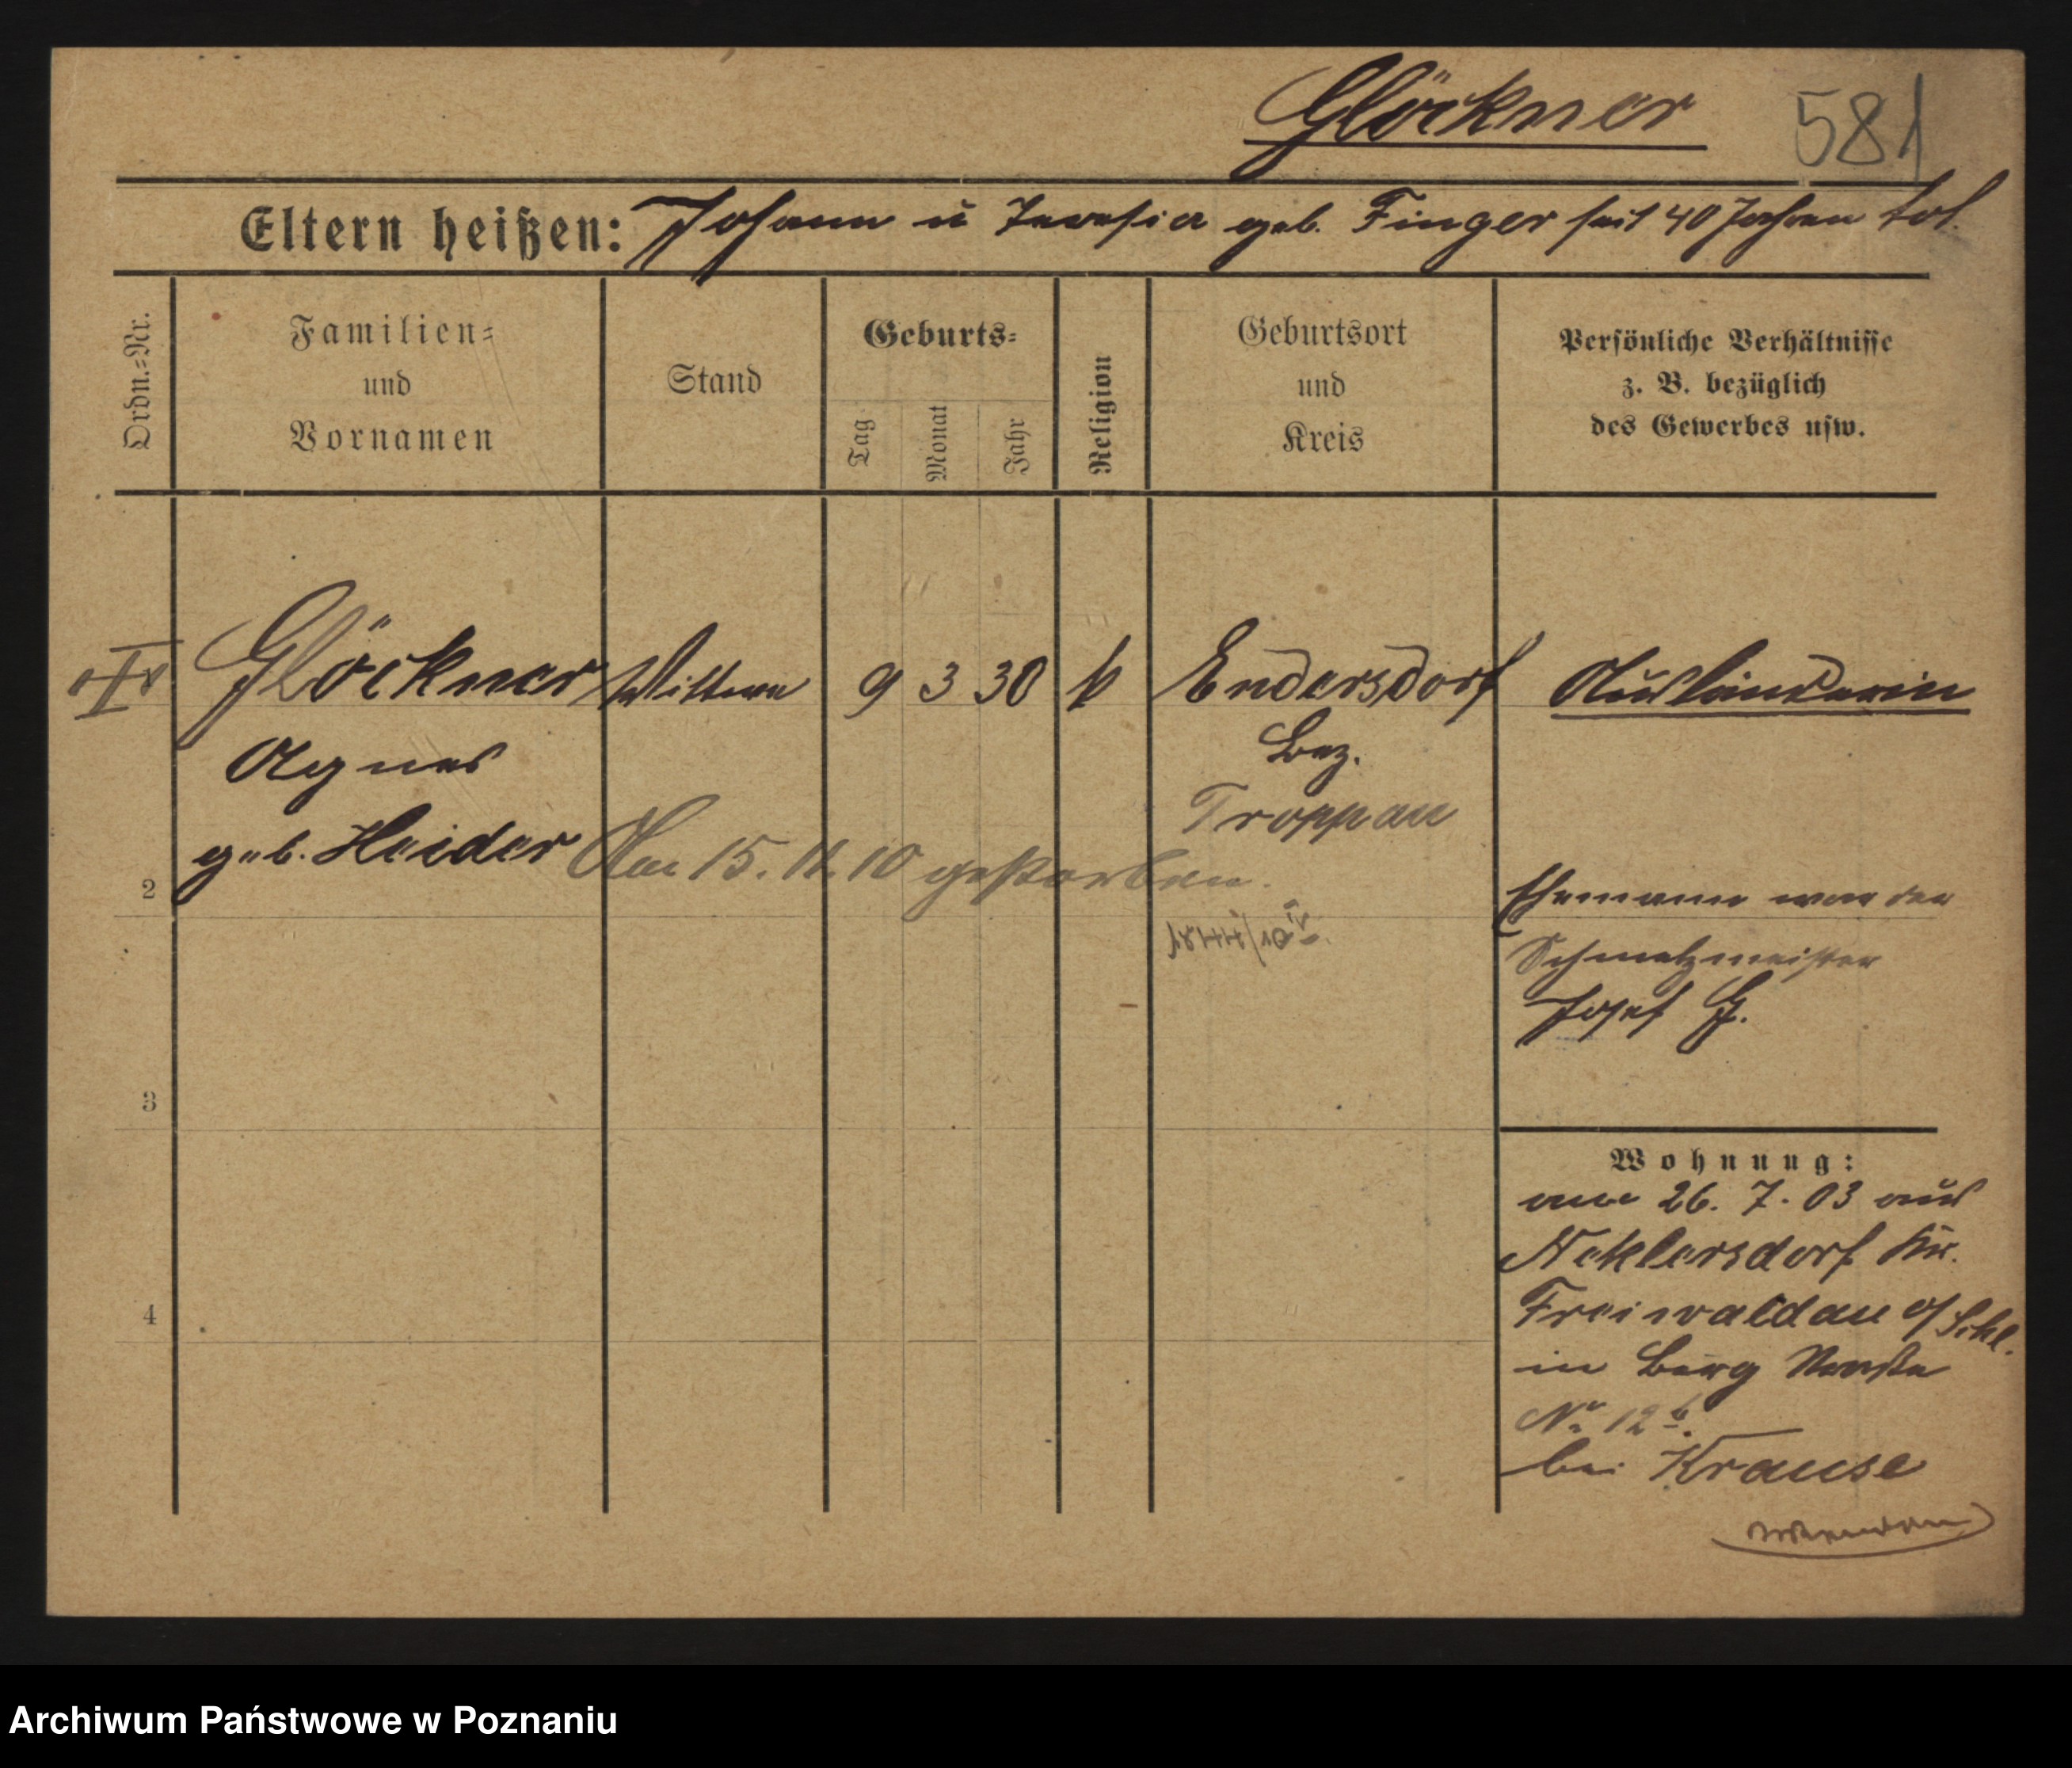 Glöckner 581
Eltern heißen: Johann u Teresia geb. Finger seit 40 Jahren tot.
Ordn.=Nr.
Familien=
und
Vornamen
Stand
Geburts=
Tag
Monat
Jahr
Religion
Geburtsort
und
Kreis
Persönliche Verhältnisse
z. B. bezüglich
des Gewerbes usw.
Glöckner Wittwe 9 3 30 k Endersdorf Ausländerin
Agnes Bez.
Troppau
geb. Heider Am 15. 11. 10 gestorben.
2
Ehemann war der
Schmelzmeister
Josef G.
3
Wohnung:
am 26. 7. 03 aus
Niklersdorf Kr.
4
Freiwaldau o/Schl.
in Berg
No 12b.
bei Krause
wenden
Archiwum Państwowe w Poznaniu